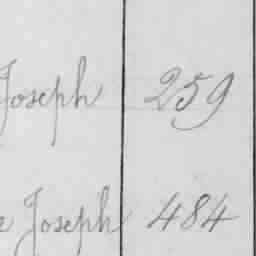 Joseph 259
e Joseph 484